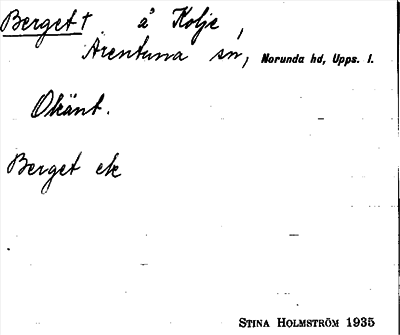 Berget† å Kolje,
Ärentuna sn, Norunda hd, Upps. l.
Okänt.
Berget ek
STINA HOLMSTRÖM 1935